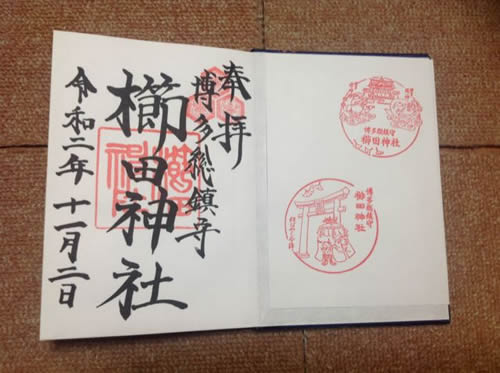 奉拝
博多総鎮守
櫛田神社
令和二年十一月二日
博多総鎮守
櫛田神社
博多総鎮守
櫛田神社